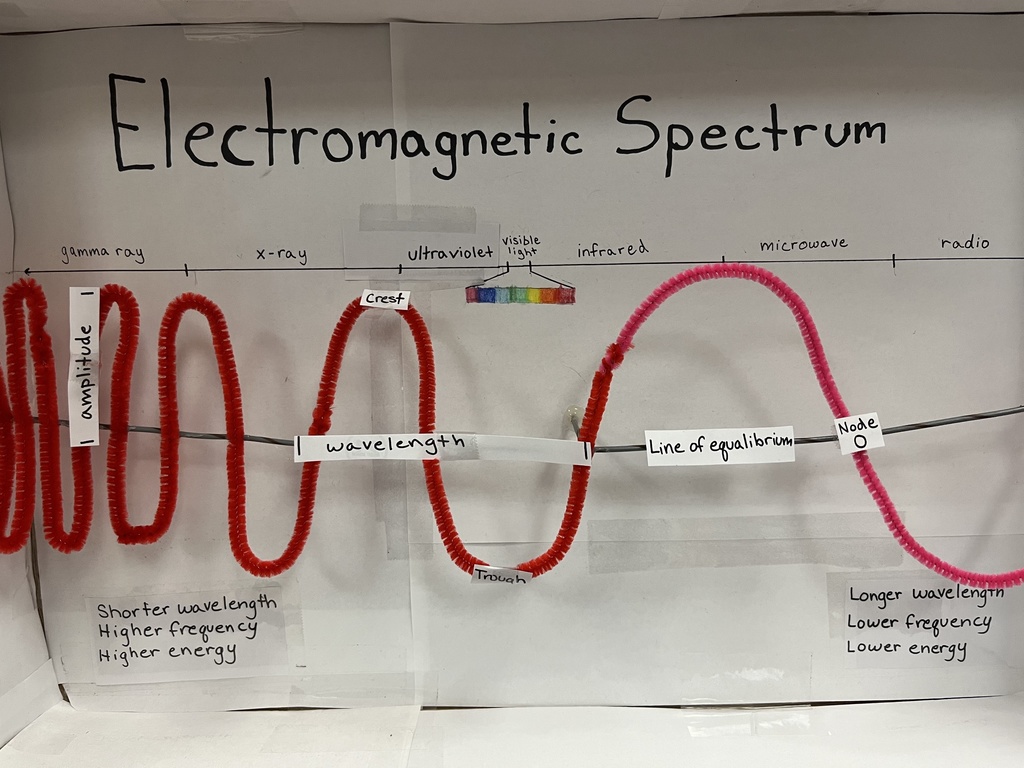 Electromagnetic Spectrum
gamma ray
x-ray
ultraviolet
visible
light
infrared
microwave
radio
Crest
amplitude
wavelength
Line of equalibrium
Node
O
Trough
Shorter wavelength
Higher frequency
Higher energy
Longer wavelength
Lower frequency
Lower energy